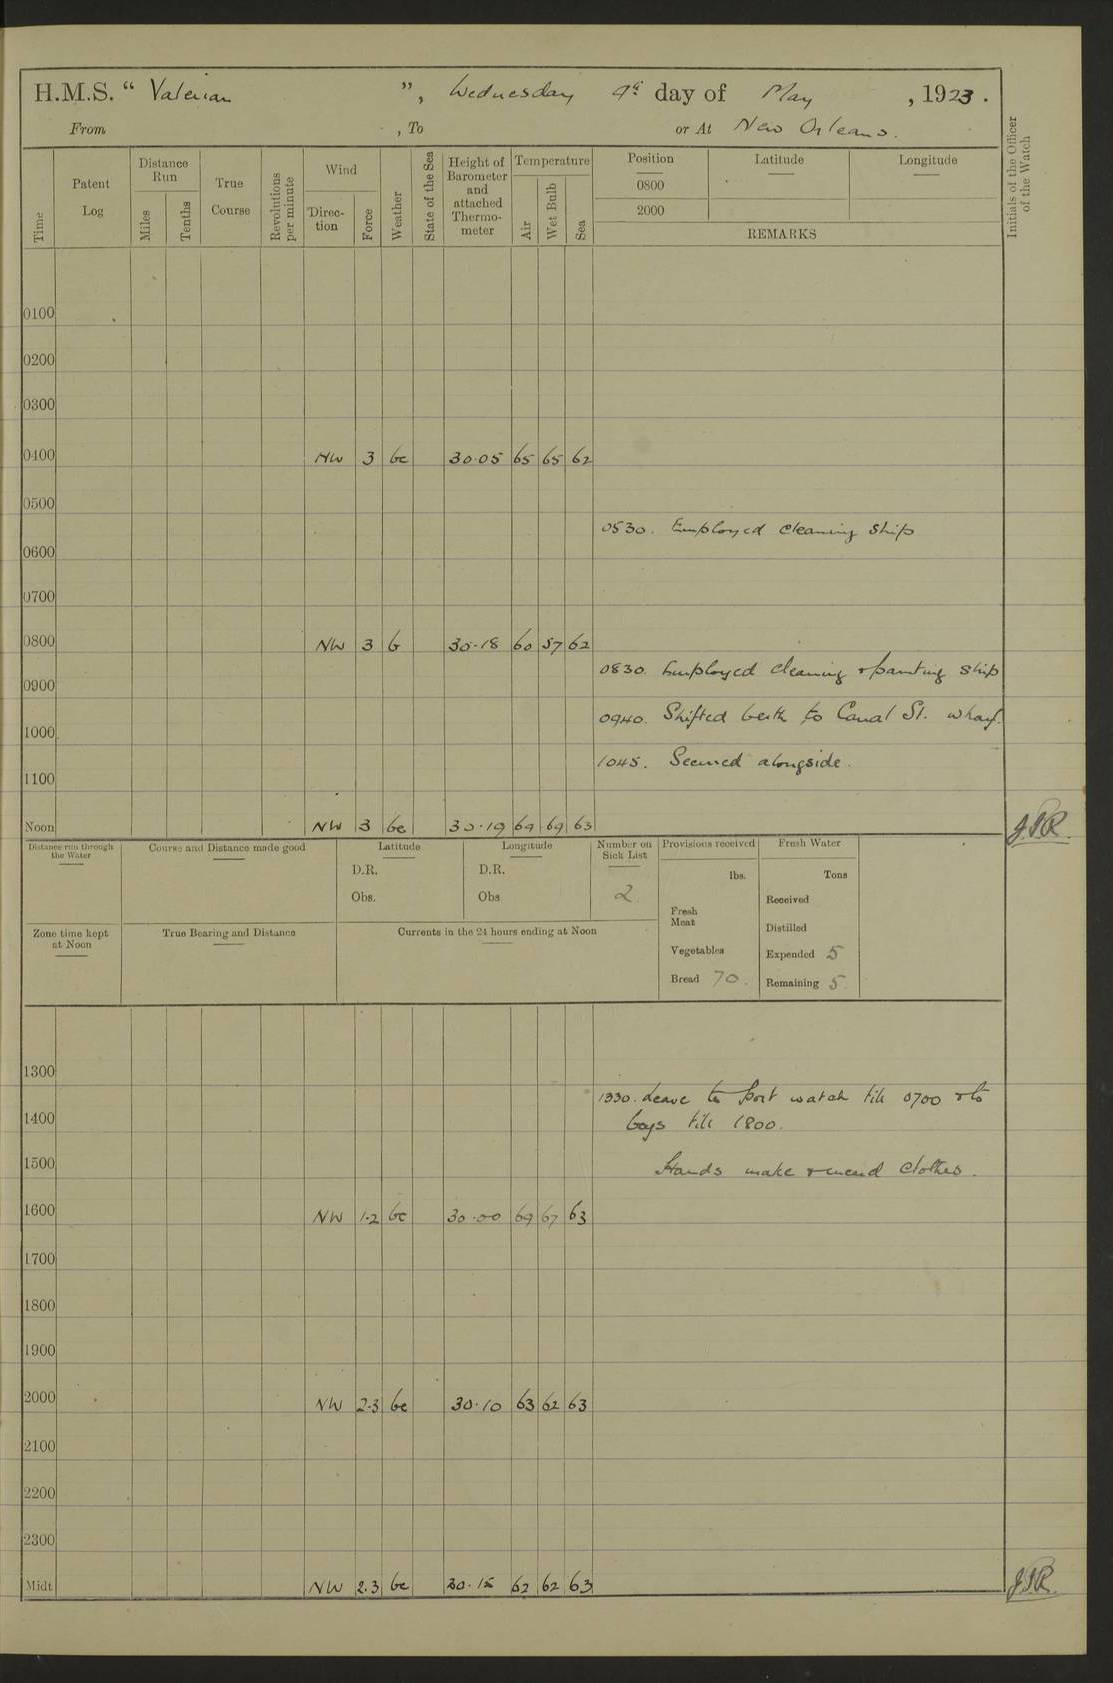 H.M.S. “ Valerian ”, Wednesday 9th day of May , 1923 .
From , To or At New Orleans.
Time
Patent Log
Distance Run
Miles
Tenths
True Course
Revolutions per minute
Wind
Direc-tion
Force
Weather
State of the Sea
Height of Barometer and attached Thermo-meter
Temperature
Air
Wet Bulb
Sea
Position
0800
2000
Latitude
Longitude
REMARKS
Initials of the Officer of the Watch
0100
0200
0300
0400 NW 3 bc 30.05 65 65 62
0500
0530. Employed cleaning ship
0600
0700
0800 NW 3 b 30.18 60 57 62
0830. Employed cleaning & painting ship
0900
0940. Shifted berth to Canal St. wharf.
1000
1045. Secured alongside.
1100
Noon NW 3 bc 30.19 69 69 63 J.P.R.
Distance run through the Water
Course and Distance made good
Latitude
D.R.
Obs.
Longitude
D.R.
Obs
Number on Sick List
2
Provisions received
lbs.
Fresh Meat
Vegetables
Bread 70.
Fresh Water
Tons
Received
Distilled
Expended 5
Remaining 5
Zone time kept at Noon
True Bearing and Distance
Currents in the 24 hours ending at Noon
1300
1330. Leave to Port watch till 0700 & to
1400
boys till 1800.
1500
Hands make & mend clothes.
1600 NW 1.2 bc 30.00 69 67 63
1700
1800
1900
2000 NW 2.3 bc 30.10 63 62 63
2100
2200
2300
Midt. NW 2.3 bc 30.15 62 62 63 J.P.R.